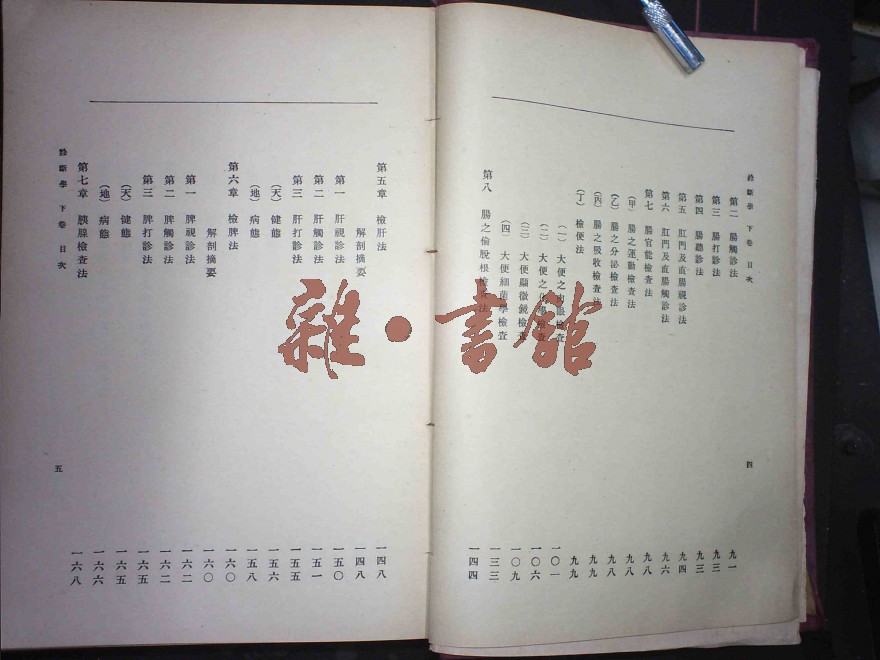 診斷學 下卷 目次 四
第二 腸觸診法 九一
第三 腸打診法 九三
第四 腸聽診法 九三
第五 肛門及直腸視診法 九四
第六 肛門及直腸觸診法 九六
第七 腸官能檢查法 九八
(甲) 腸之運動檢查法 九八
(乙) 腸之分泌檢查法 九八
(丙) 腸之吸收檢查法 九九
(丁) 檢便法 九九
(一) 大便之肉眼檢查 一〇一
(二) 大便之化學檢查 一〇六
(三) 大便顯微鏡檢查 一〇九
(四) 大便細菌學檢查 一三三
第八 腸之倫脫根檢查法 一四四
第五章 檢肝法 一四八
解剖摘要 一四八
第一 肝視診法 一五〇
第二 肝觸診法 一五一
第三 肝打診法 一五五
(天) 健態 一五六
(地) 病態 一五八
第六章 檢脾法 一六〇
解剖摘要 一六〇
第一 脾視診法 一六二
第二 脾觸診法 一六二
第三 脾打診法 一六五
(天) 健態 一六五
(地) 病態 一六六
第七章 胰腺檢查法 一六八
診斷學 下卷 目次 五
雜·書館